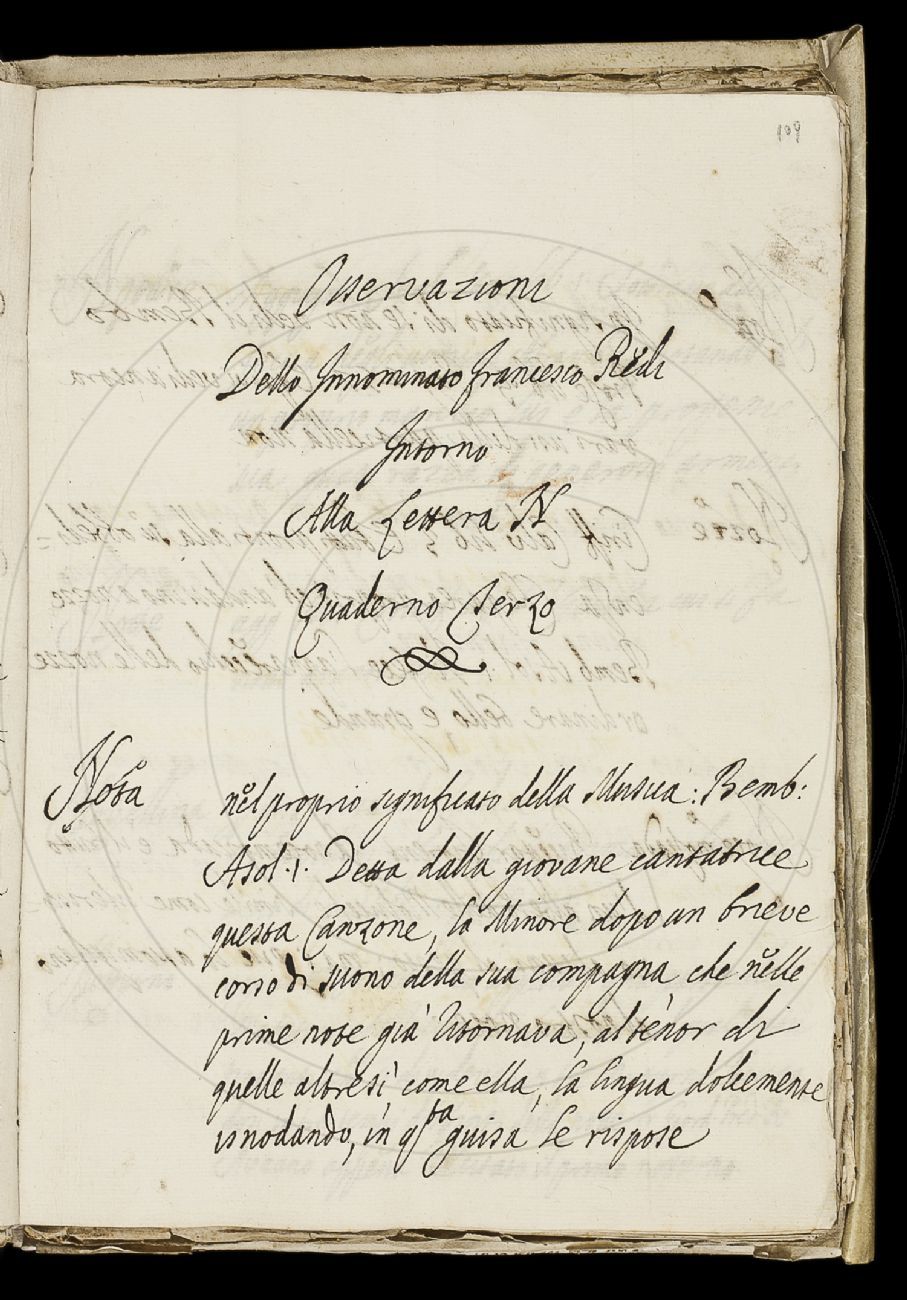 109
Osservazioni
Dello Innominato Francesco Redi
Intorno
Alla Lettera N
Quaderno Terzo
Nota nel proprio significato della Musica: Bemb:
Asol. 1. Detta dalla giovane cantatrice
questa Canzone, la Minore dopo un brieve
corso di suono della sua compagna che nelle
prime note già ritornava, al tenor di
quelle altresì come ella, la lingua dolcemente
isnodando, in qsta guisa le rispose